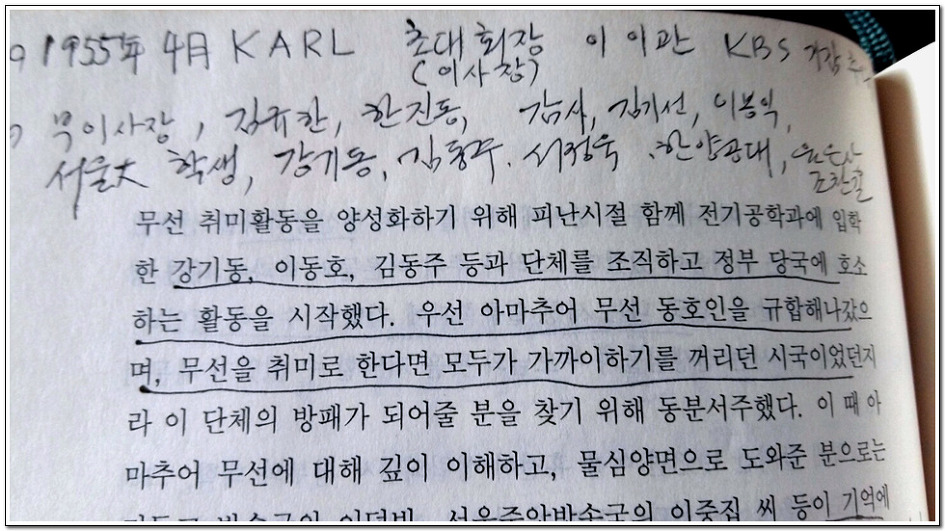 1955年 4月 KARL 초대 회장 이 이관 KBS
(이사장)
부이사장, 김규한, 한진동, 감사, 김기선, 이봉익,
서울大 학생, 강기동, 김동주. 서정욱. 한양공대,
조한길
무선 취미활동을 양성화하기 위해 피난시절 함께 전기공학과에 입학
한 강기동, 이동호, 김동주 등과 단체를 조직하고 정부 당국에 호소
하는 활동을 시작했다. 우선 아마추어 무선 동호인을 규합해나갔으
며, 무선을 취미로 한다면 모두가 가까이하기를 꺼리던 시국이었던지
라 이 단체의 방패가 되어줄 분을 찾기 위해 동분서주했다. 이 때 아
마추어 무선에 대해 깊이 이해하고, 물심양면으로 도와준 분으로는
이덕빈, 서울중앙방송국의 이중집 씨 등이 기억에